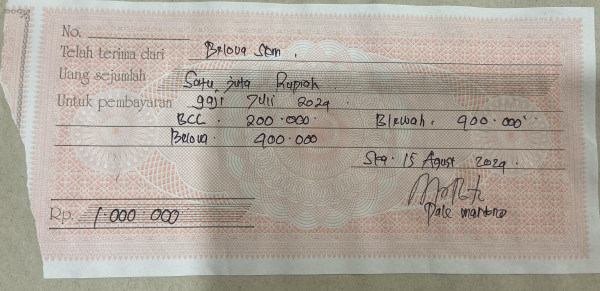 No.
Telah terima dari Belova Skm.
Uang sejumlah Satu juta Rupiah
Untuk pembayaran gaji Juli 2024.
BCL. 200.000 Blewah. 400.000
Belova. 400.000
Ska. 15 Agust 2024.
Pak mantono
Rp. 1.000.000